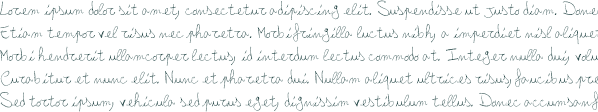 Lorem ipsum dolor sit amet, consectetur adipiscing elit. Suspendisse ut justo diam. Donec
Etiam tempor vel risus nec pharetra. Morbi fringilla luctus nibh, a imperdiet nisl aliquet
Morbi hendrerit ullamcorper lectus, id interdum lectus commodo at. Integer nulla dui, volu
Curabitur et nunc elit. Nunc et pharetra dui. Nullam aliquet ultrices risus, faucibus pre
Sed tortor ipsum, vehicula sed purus eget, dignissim vestibulum tellus. Donec accumsan f